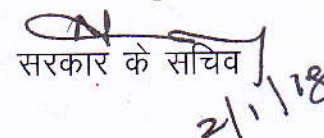 सरकार के सचिव
2/1/18